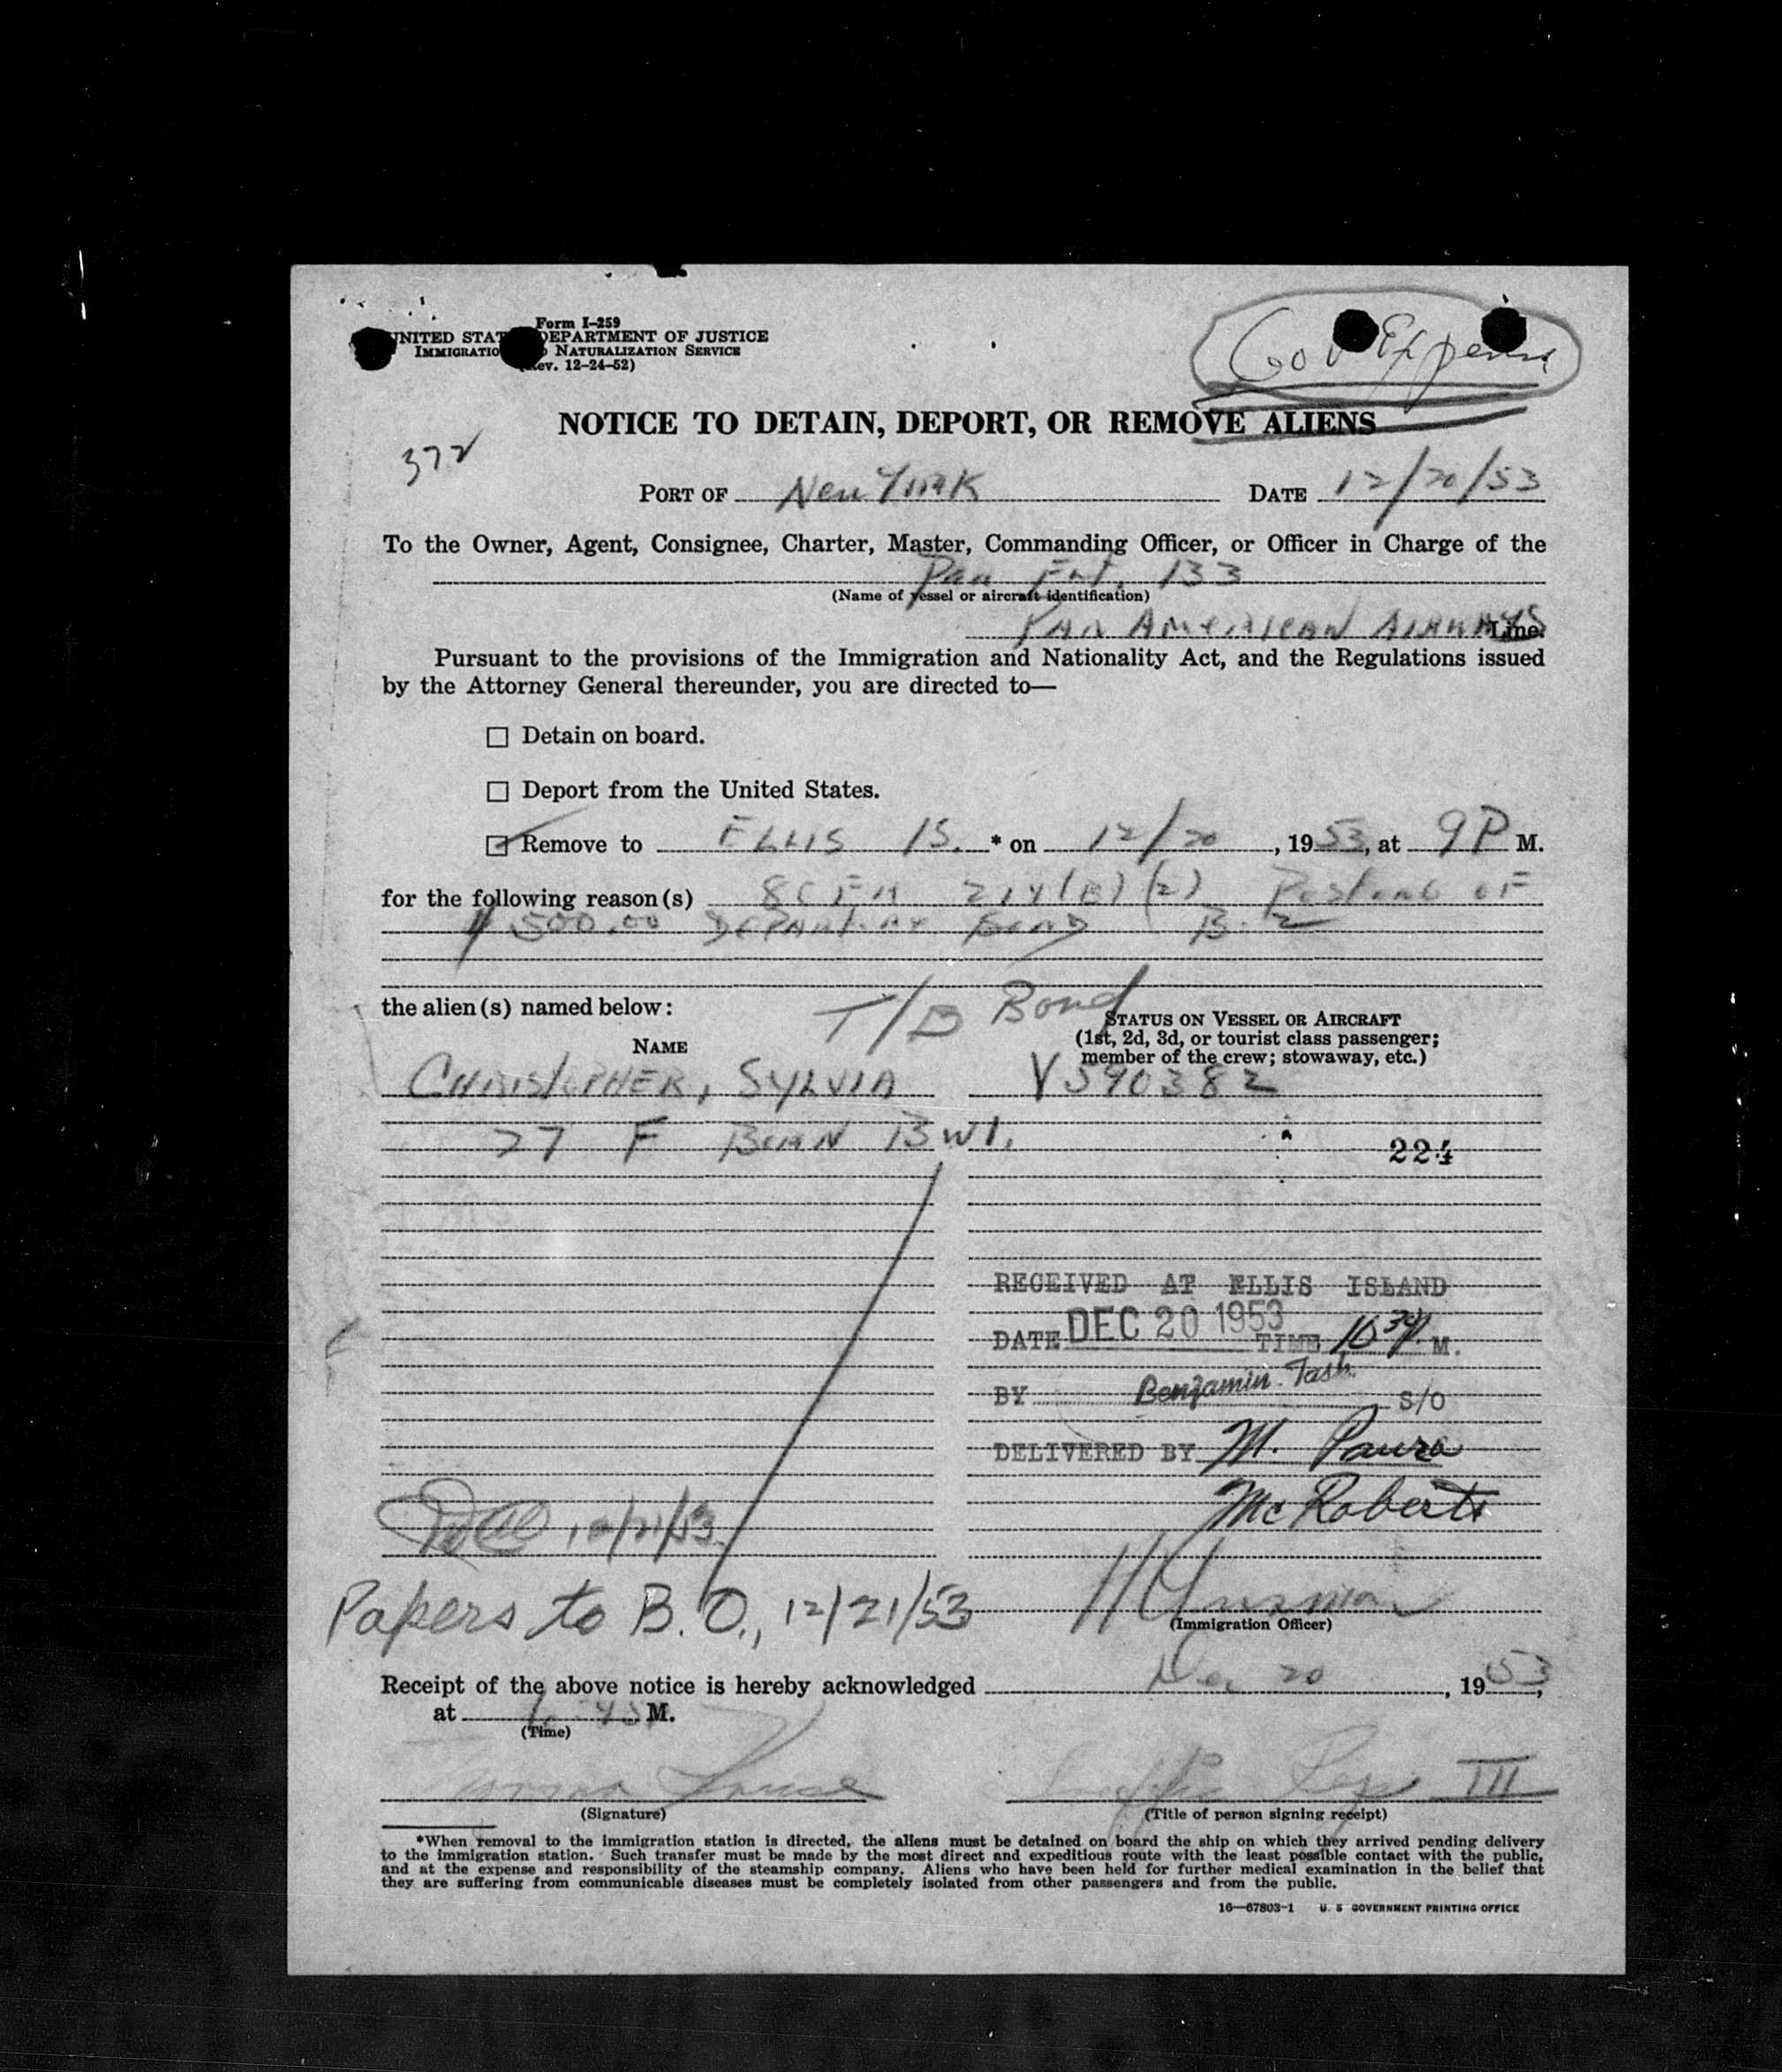 Form I-259
UNITED STAT DEPARTMENT OF JUSTICE
IMMIGRATIO NATURALIZATION SERVICE
ev. 12-24-52)
Gov Expense
NOTICE TO DETAIN, DEPORT, OR REMOVE ALIENS
372
PORT OF New York DATE 12/20/53
To the Owner, Agent, Consignee, Charter, Master, Commanding Officer, or Officer in Charge of the
Paa Flt. 133
(Name of vessel or aircraft identification)
PAN AMERICAN AIRWAYS Line.
Pursuant to the provisions of the Immigration and Nationality Act, and the Regulations issued
by the Attorney General thereunder, you are directed to—
☐ Detain on board.
☐ Deport from the United States.
☑ Remove to ELLIS IS. * on 12/20, 1953, at 9 P M.
for the following reason(s) 8 CFR 214(B)(2) Posting OF
$500.00 DEPARTURE BOND B-2
the alien(s) named below:
T/D Bond
STATUS ON VESSEL OR AIRCRAFT
(1st, 2d, 3d, or tourist class passenger;
member of the crew; stowaway, etc.)
NAME
CHRISTOPHER, SYLVIA V590382
77 F BORN BWI.
224
RECEIVED AT ELLIS ISLAND
DATE DEC 20 1953 TIME M.
BY Benjamin Tash S/O
DELIVERED BY M. Pauza
McRoberts
12/21/53
Papers to B.O., 12/21/53
(Immigration Officer)
Receipt of the above notice is hereby acknowledged Dec 20, 1953,
at M.
(Time)
III
(Signature) (Title of person signing receipt)
*When removal to the immigration station is directed, the aliens must be detained on board the ship on which they arrived pending delivery
to the immigration station. Such transfer must be made by the most direct and expeditious route with the least possible contact with the public,
and at the expense and responsibility of the steamship company. Aliens who have been held for further medical examination in the belief that
they are suffering from communicable diseases must be completely isolated from other passengers and from the public.
16—67803-1 U. S GOVERNMENT PRINTING OFFICE